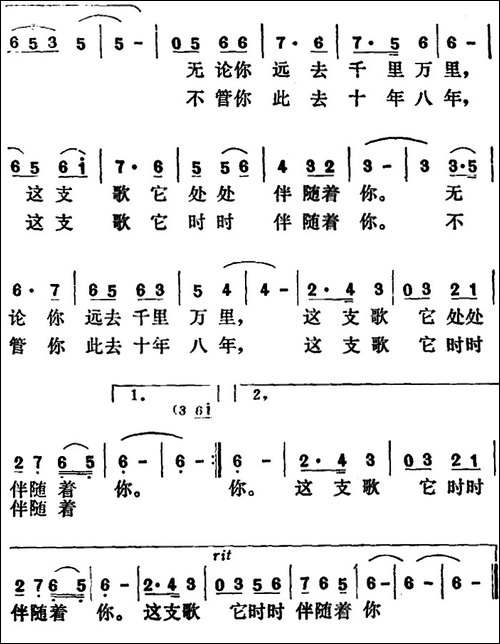 6 5 3 5 | 5 - | 0 5 6 6 | 7 · 6 | 7 · 5 6 | 6 -
无论你 远去 千里万里,
不管你 此去 十年八年,
6 5 6 i | 7 · 6 | 5 5 6 | 4 3 2 | 3 - | 3 3 · 5
这支 歌它 处处 伴随着 你。 无
这支 歌它 时时 伴随着 你。 不
6 · 7 | 6 5 6 3 | 5 4 | 4 - | 2 · 4 3 | 0 3 2 1
论你 远去千里 万里, 这支歌 它处处
管你 此去十年 八年, 这支歌 它时时
1. 2,
(3 6 i
2 7 6 5 | 6 - | 6 - :|| 6 - | 2 · 4 3 | 0 3 2 1
伴随着 你。 你。 这支歌 它时时
伴随着
rit
2 7 6 5 | 6 - | 2 · 4 3 | 0 3 5 6 | 7 6 5 | 6 - | 6 - ||
伴随着 你。 这支歌 它时时 伴随着 你